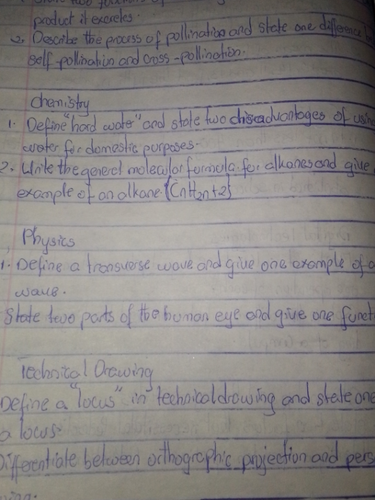 product it excretes.
2. Describe the process of pollination and state one difference
self-pollination and cross-pollination.
chemistry
1. Define "hard water" and state two disadvantages of
water for domestic purposes.
2. Write the general molecular formula for alkanes and give
example of an alkane. (CnH2n+2)
Physics
1. Define a transverse wave and give one example of a
wave.
State two parts of the human eye and give one
Technical Drawing
Define a "locus" in technical drawing and state one
a locus.
Differentiate between orthographic projection and